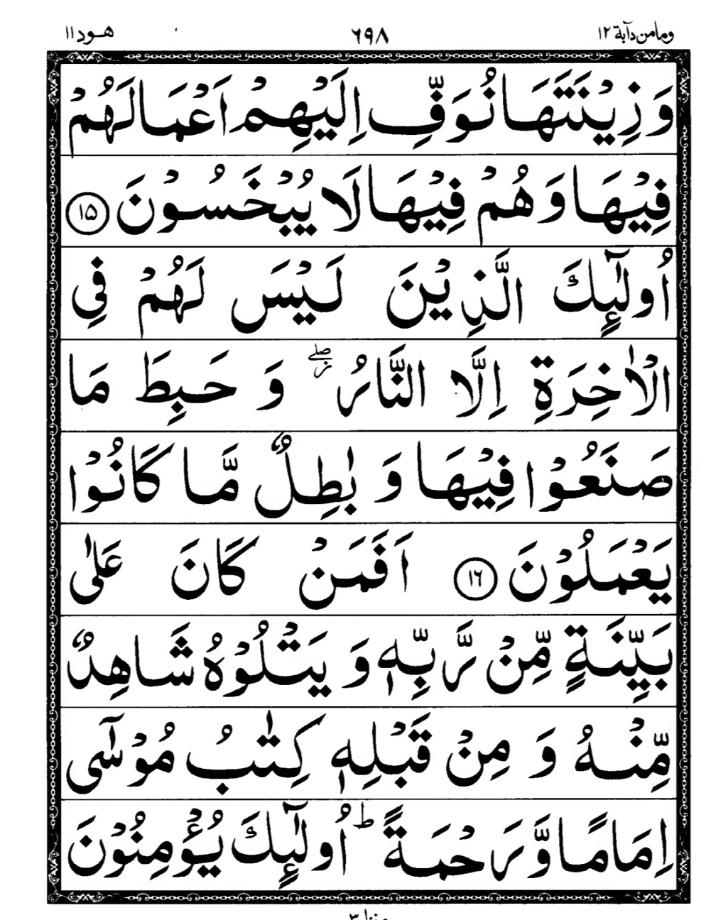 ومامن دآبة ١٢ ٦٩٨ هود ١١
وَ زِيْنَتَهَا نُوَفِّ اِلَيْهِمْ اَعْمَالَهُمْ
فِيْهَا وَ هُمْ فِيْهَا لَا يُبْخَسُوْنَ ۝١٥
اُولٰٓئِكَ الَّذِيْنَ لَيْسَ لَهُمْ فِي
الْاٰخِرَةِ اِلَّا النَّارُ ۖ وَ حَبِطَ مَا
صَنَعُوْا فِيْهَا وَ بٰطِلٌ مَّا كَانُوْا
يَعْمَلُوْنَ ۝١٦ اَفَمَنْ كَانَ عَلٰى
بَيِّنَةٍ مِّنْ رَّبِّهٖ وَ يَتْلُوْهُ شَاهِدٌ
مِّنْهُ وَ مِنْ قَبْلِهٖ كِتٰبُ مُوْسٰٓى
اِمَامًا وَّ رَحْمَةً ؕ اُولٰٓئِكَ يُؤْمِنُوْنَ